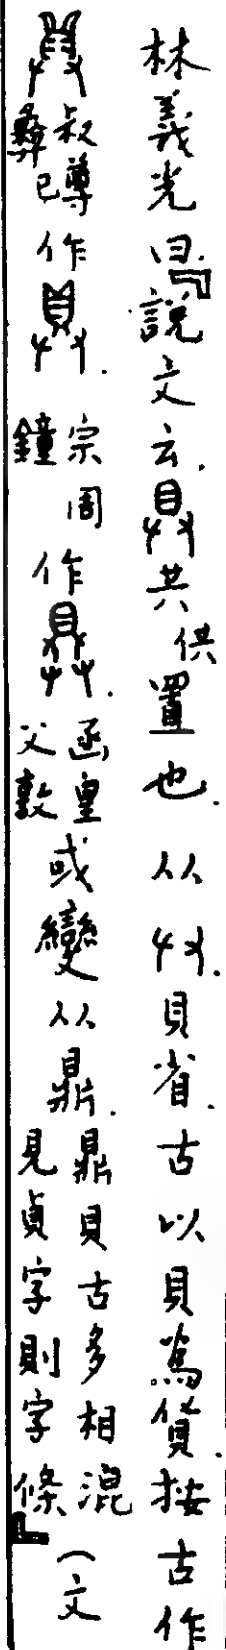 林義光曰『說文云.具共供置也.从廾.貝省.古以貝爲貨.按古作
叔尊彝己作.宗周鐘作.函皇父敦或變从鼎.鼎貝古多相混見貞字則字條』(文